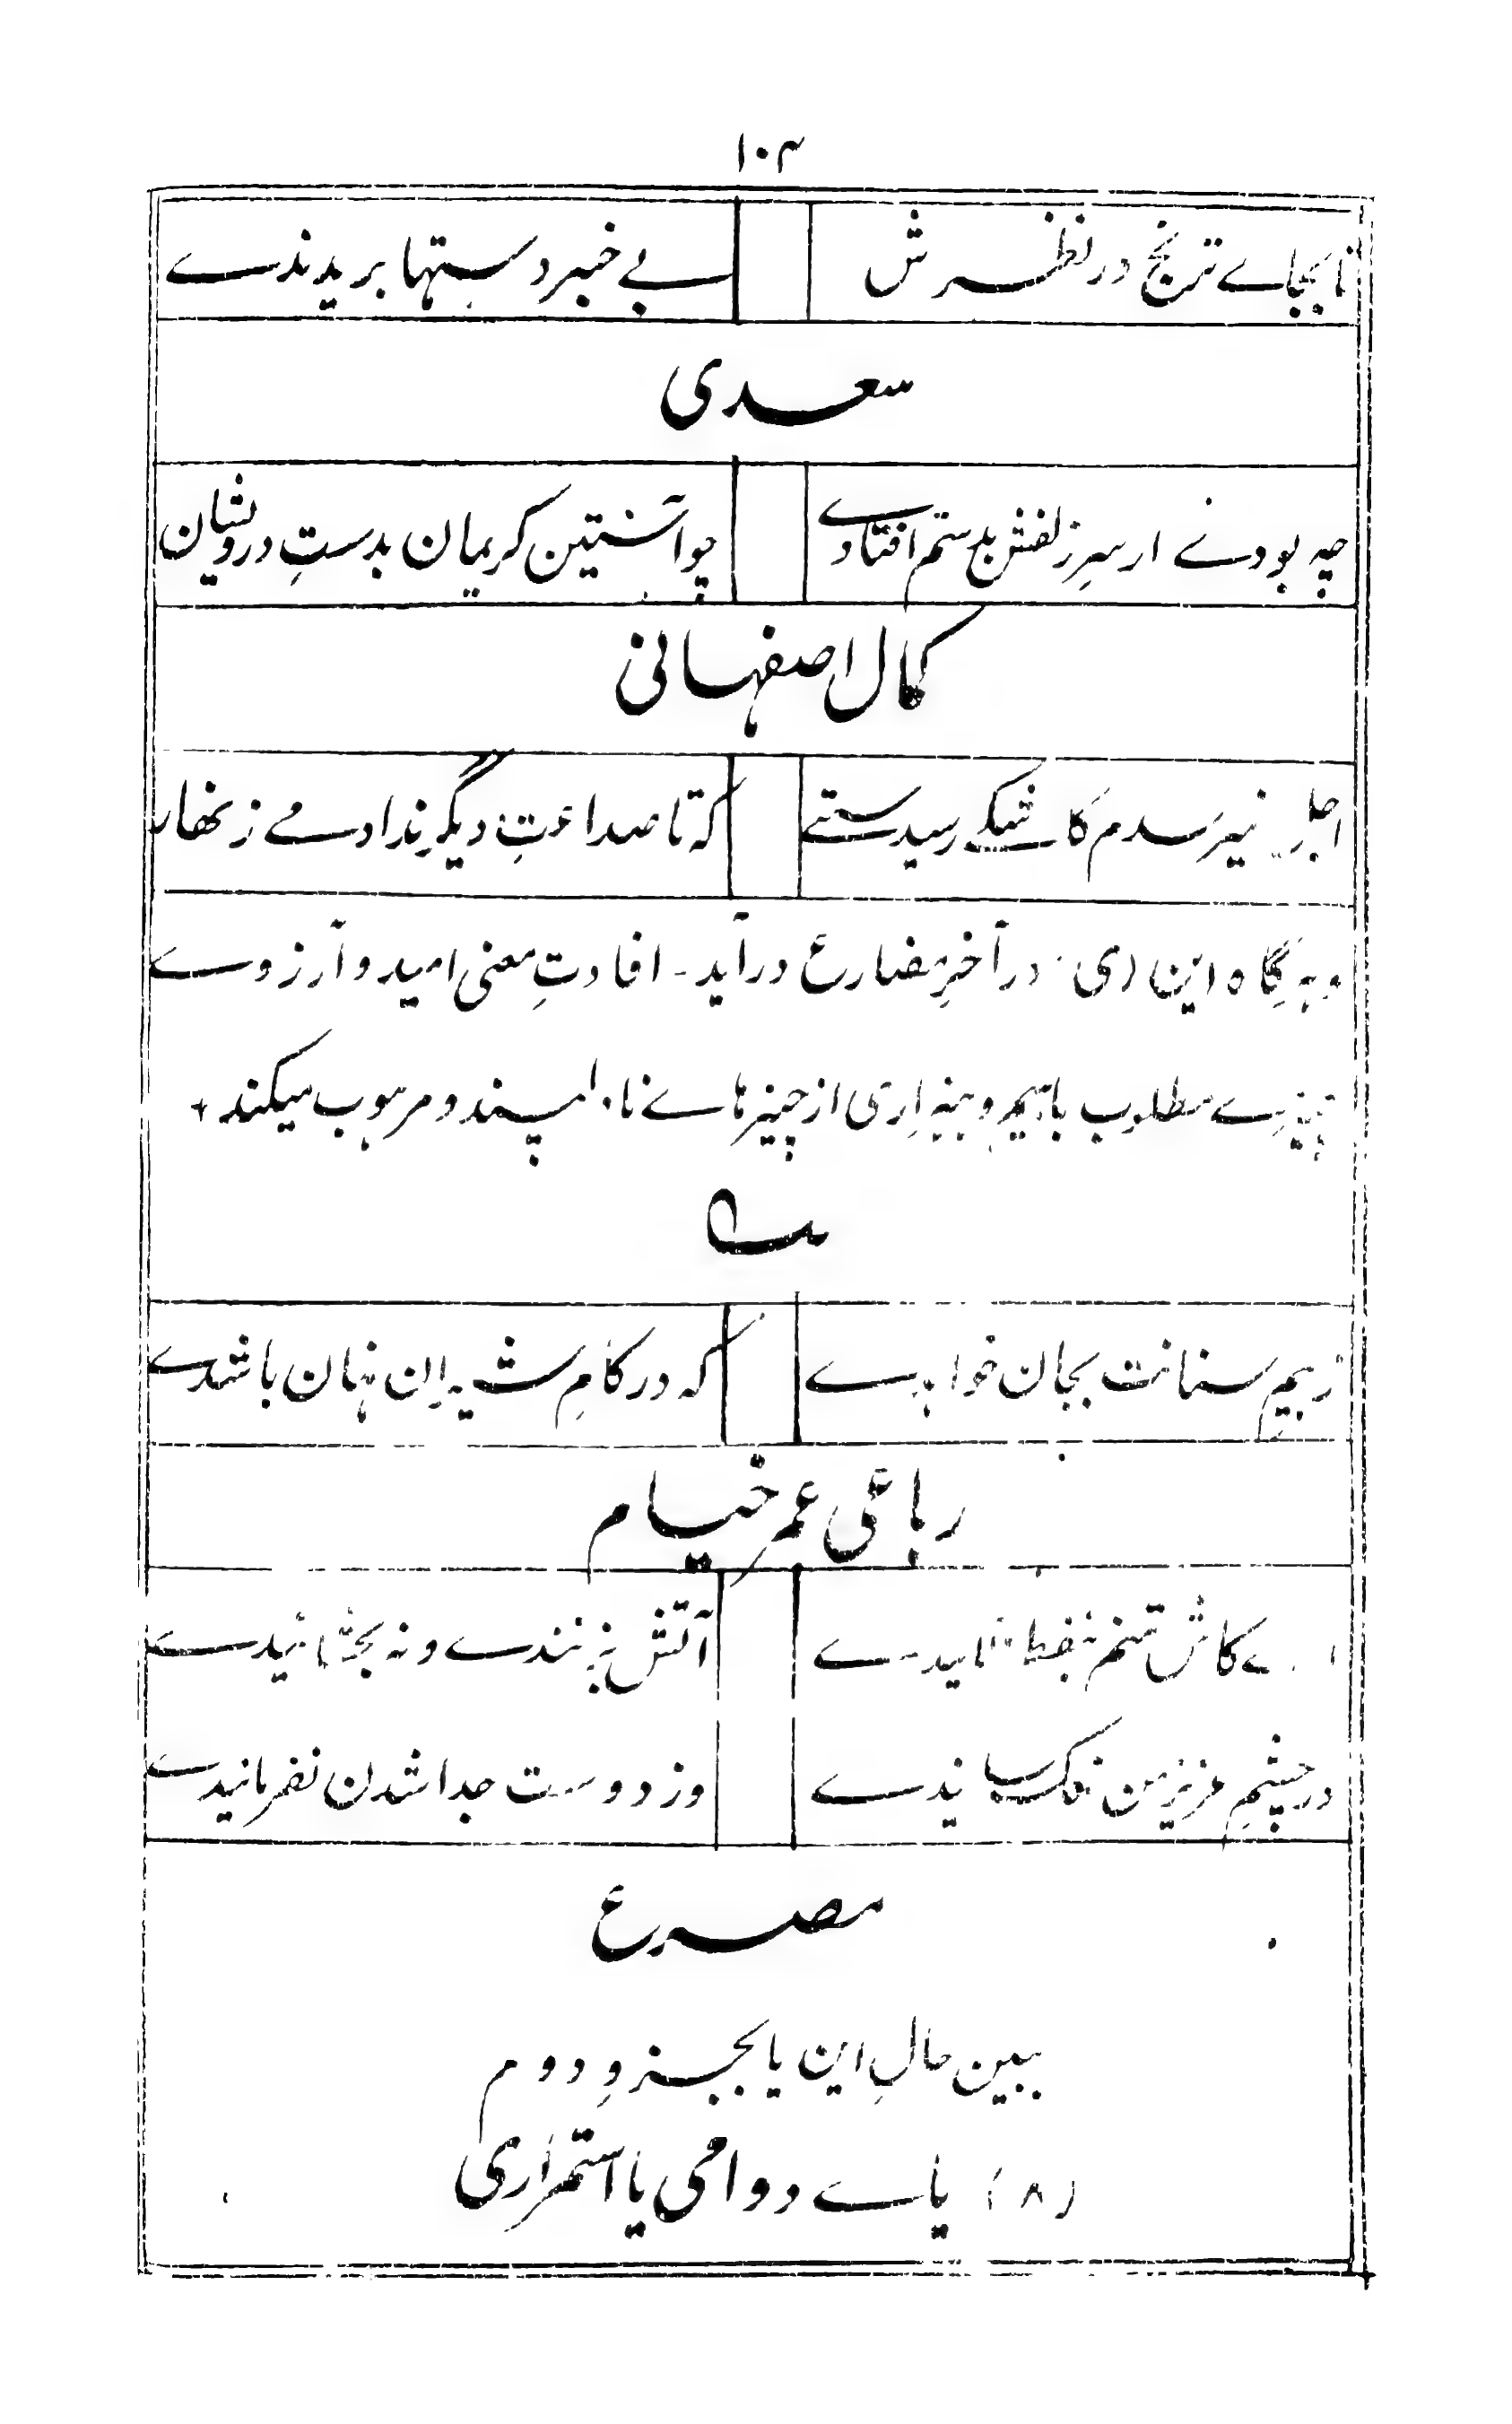 ۱۰۴
تا بجاے ترنج در نظرش بے خبر دستہا بریدندے
سعدی
چه بودے ار سرِ زلفش بدستم افتادے چو آستین کریمان بدستِ درویشان
کمال اصفہانی
اجل نیرسدم کاشکے رسیدستے که تا صداعتِ دیگر ندادمے زنهار
و ہرگاه این (ی) در آخرِ مضارع درآید - افادتِ معنی امید و آرزوے
چیزے مطلوب با بیم و بیزاری از چیزہاے ناپسند و مرہوب میکند +
زبیمِ سنانت بجان خواہدے که در کامِ شیران نہان باشدے
رباعی عمر خیام
اے کاش تنم نفط آئیدے آتش بزنندے و نہ بخشائیدے
در چشمِ عزیز من نمک سایندے وز دوست جدا شدن نفرمائیدے
مصرع
ببین حالِ این یا بجزوِ دوم
(۸) یاے دوامی یا استمراری